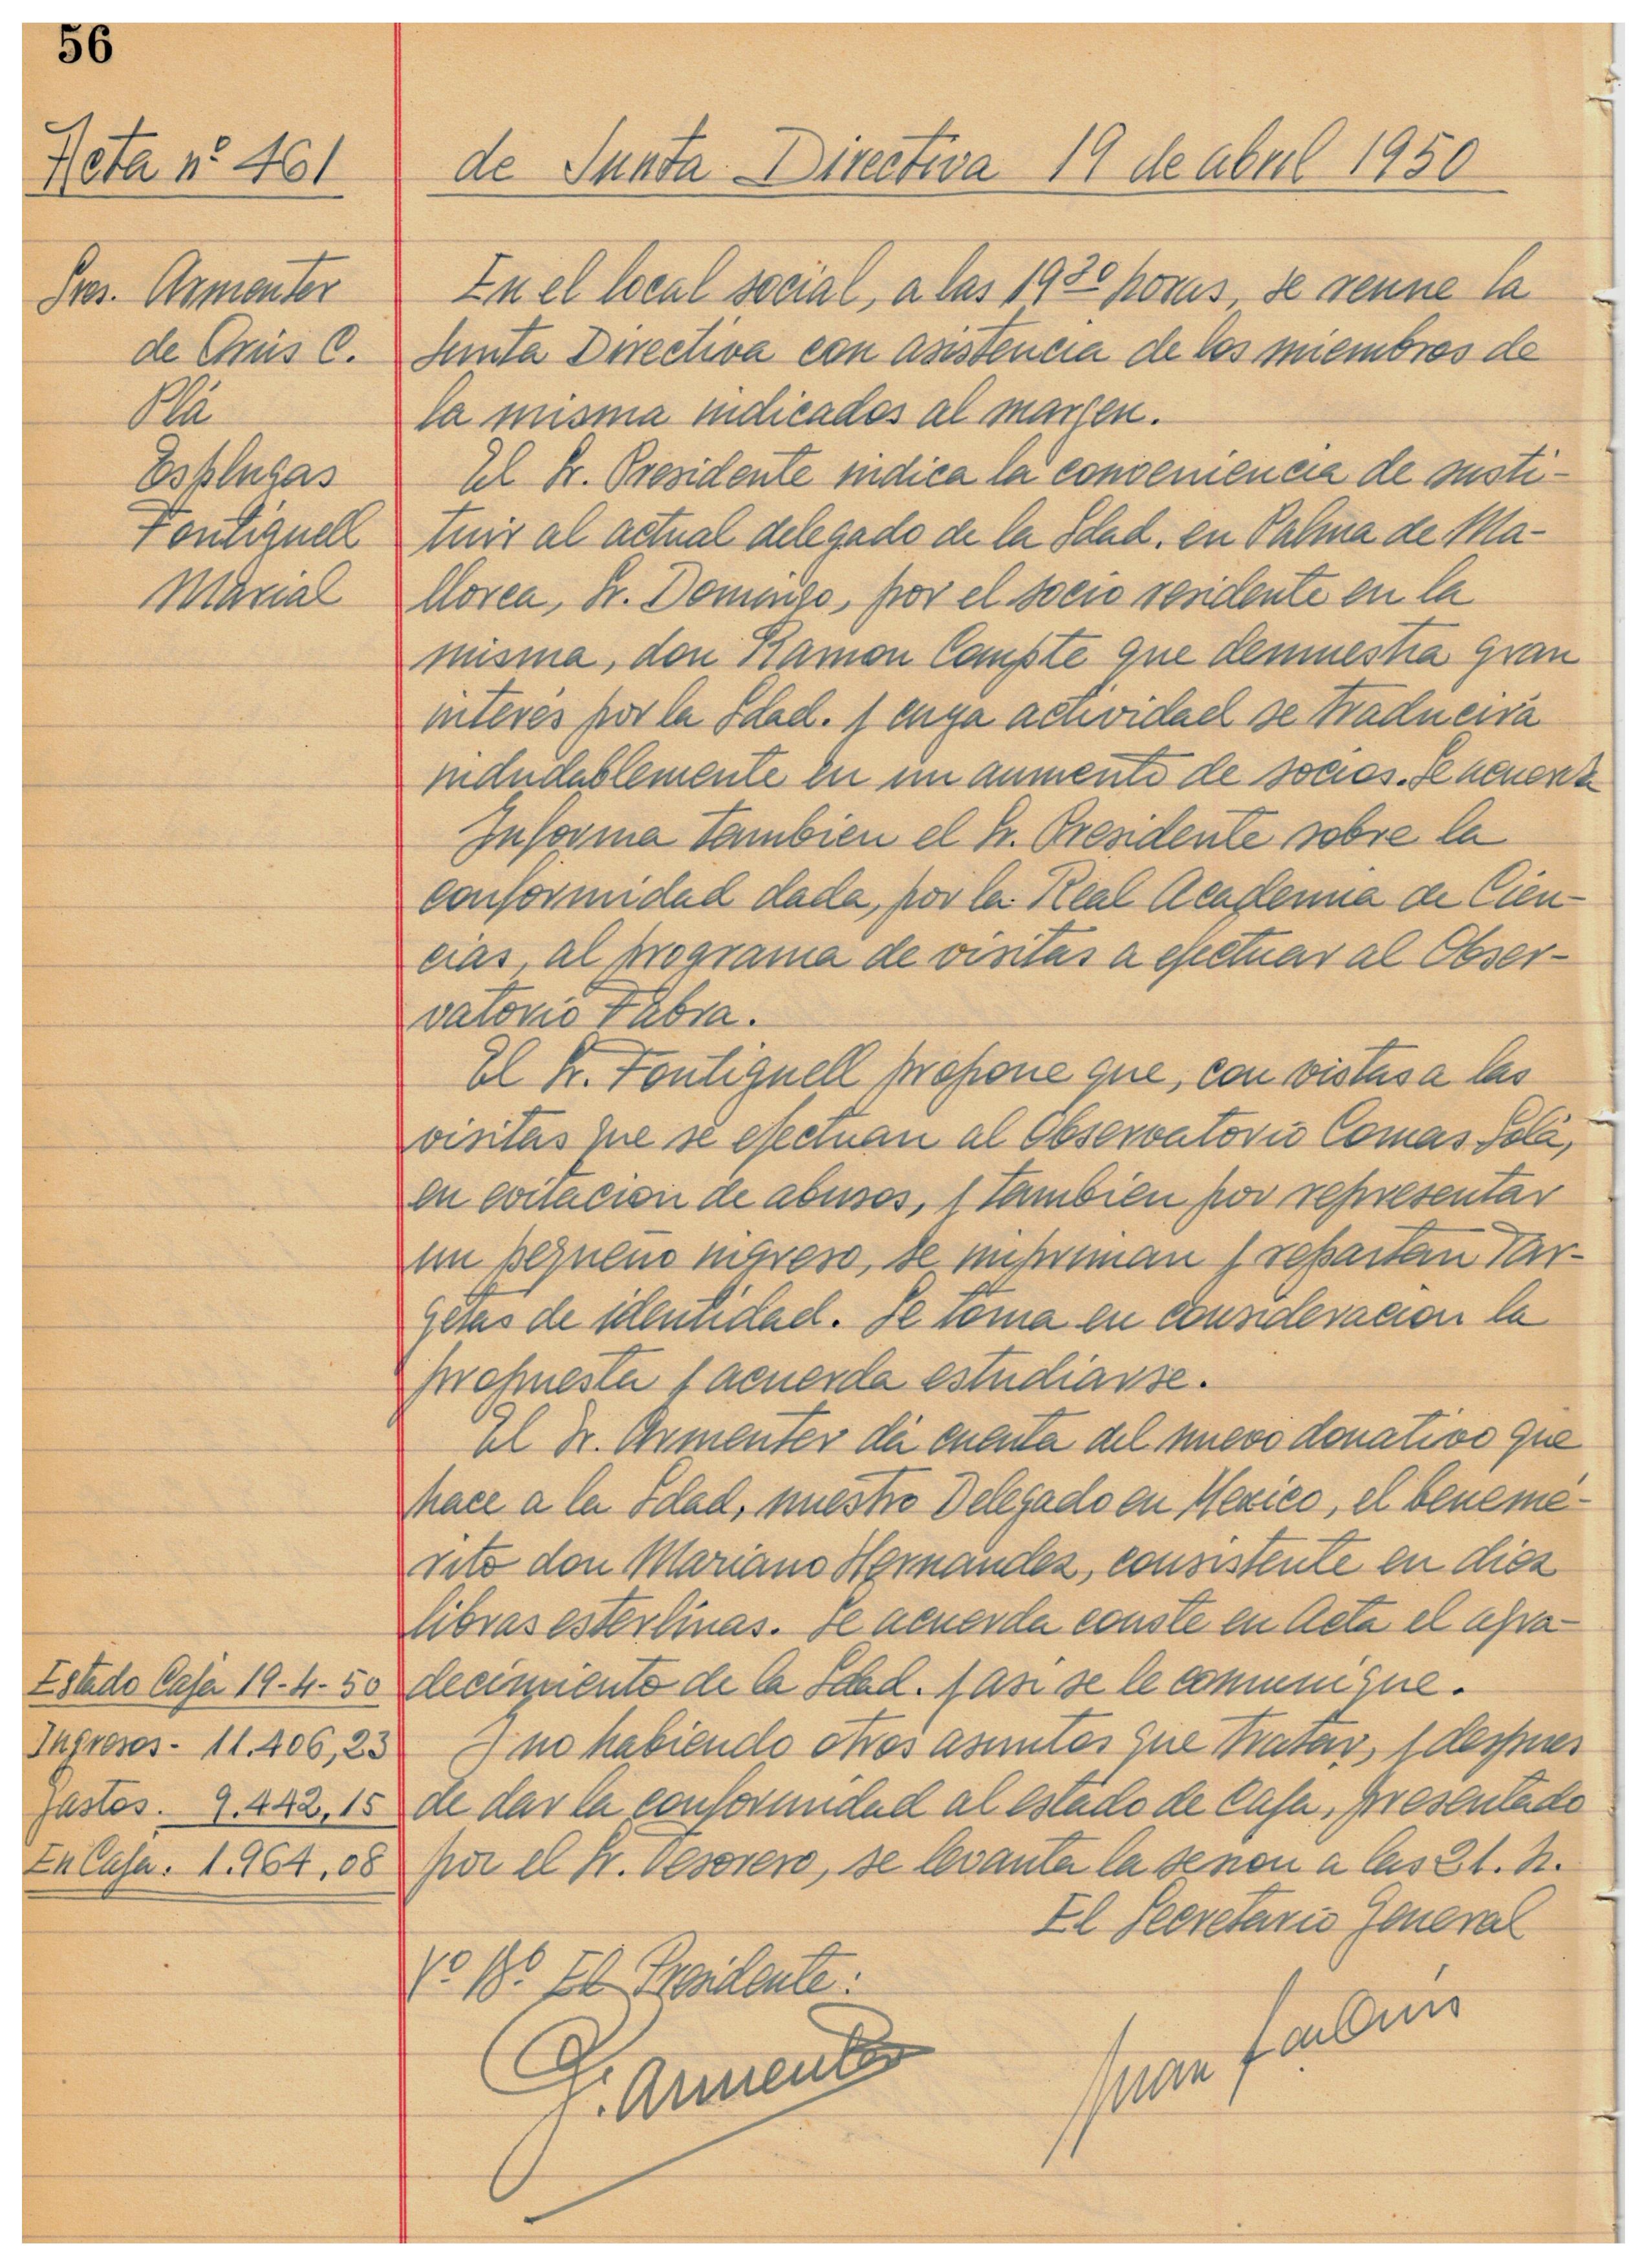 56
Acta nº 461
de Junta Directiva 19 de abril 1950
Sres. Armenter
de Orús C.
Plá
Esplugas
Fontiguell
Marial
En el local social, a las 19³⁰ horas, se reune la
Junta Directiva con asistencia de los miembros de
la misma indicados al margen.
El Sr. Presidente indica la conveniencia de susti-
tuir al actual delegado de la Sdad. en Palma de Ma-
llorca, Sr. Domingo, por el socio residente en la
misma, don Ramon Compte que demuestra gran
interés por la Sdad. y cuya actividad se traducirá
indudablemente en un aumento de socios. Se acuerda
Informa tambien el Sr. Presidente sobre la
conformidad dada, por la Real Academia de Cien-
cias, al programa de visitas a efectuar al Obser-
vatorio Fabra.
El Sr. Fontiguell propone que, con vistas a las
visitas que se efectuan al Observatorio Comas Solá,
en evitacion de abusos, y tambien por representar
un pequeño ingreso, se impriman y repartan Tar-
getas de identidad. Se toma en consideracion la
propuesta y acuerda estudiarse.
El Sr. Armenter dá cuenta del nuevo donativo que
hace a la Sdad, nuestro Delegado en Mexico, el benemé-
rito don Mariano Hernandez, consistente en diez
libras esterlinas. Se acuerda conste en Acta el agra-
decimiento de la Sdad. y asi se le comunique.
Y no habiendo otros asuntos que tratar, y despues
de dar la conformidad al estado de Caja, presentado
por el Sr. Tesorero, se levanta la sesion a las 21. h.
Estado Caja 19-4-50
Ingresos - 11.406,23
Gastos. 9.442,15
En Caja. 1.964,08
El Secretario General
Vº Bº El Presidente:
G. Armenter
Juan